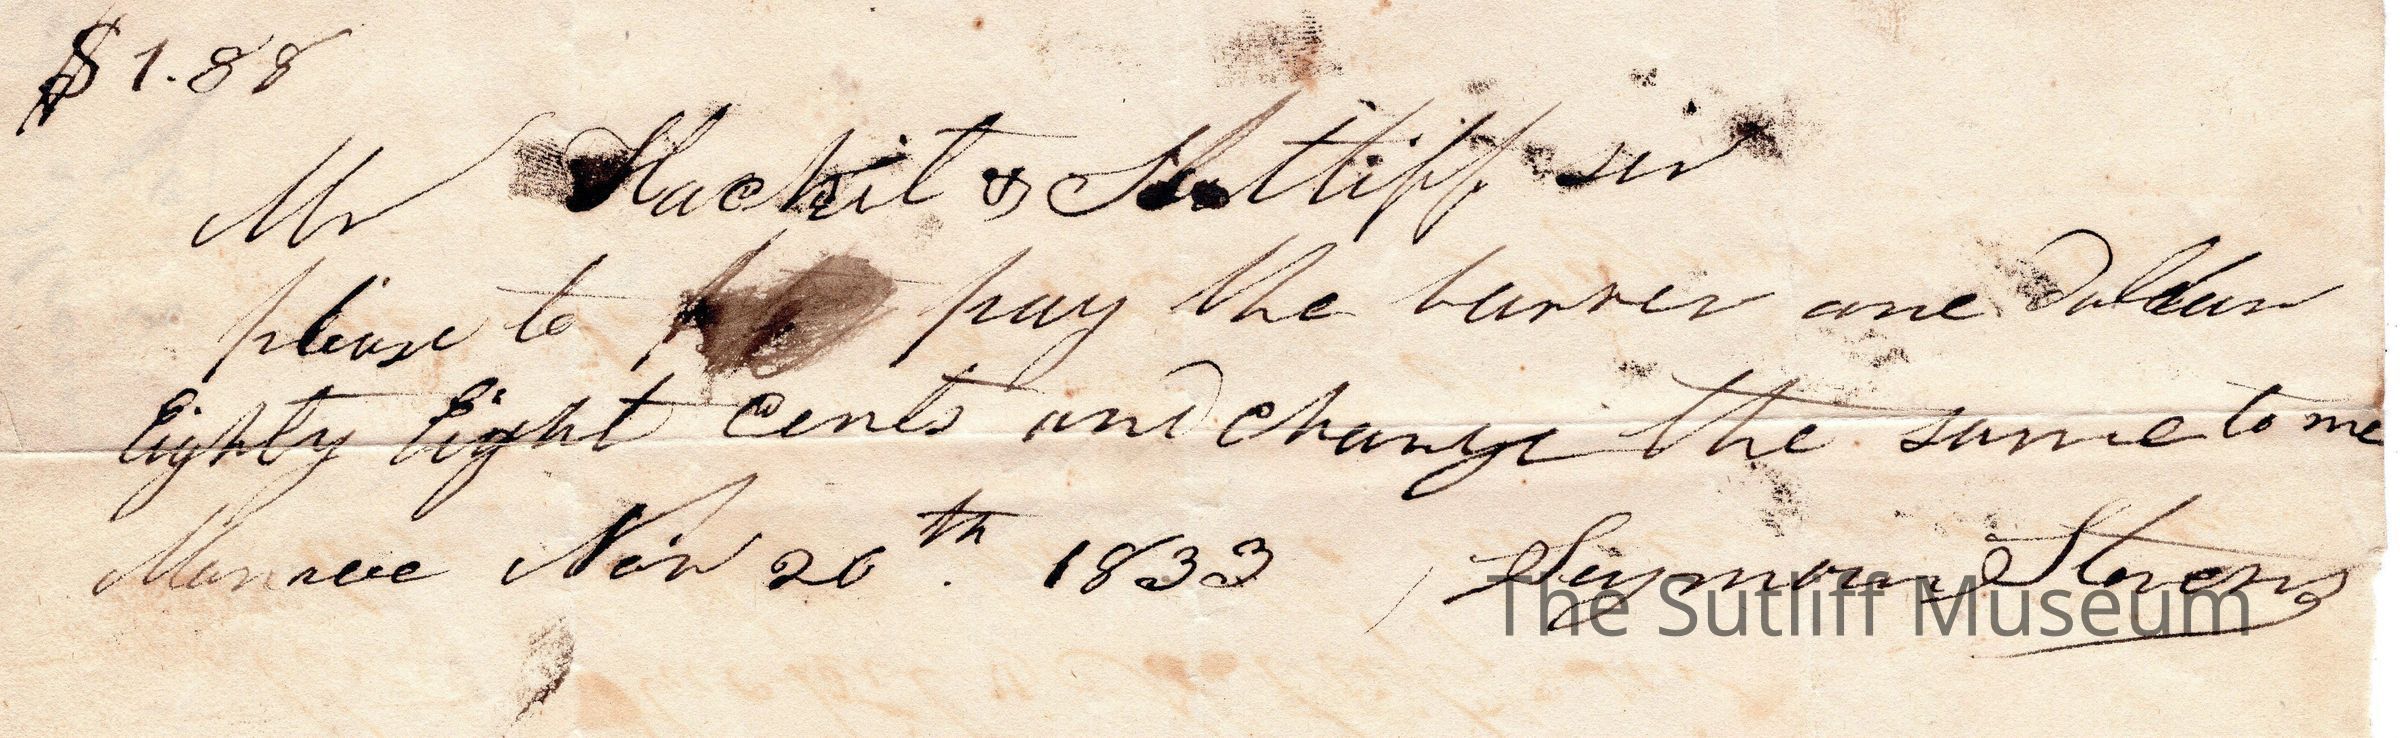 $1.88
Mr Hackit & Sutliff sir
please to pay the barrer one Dollar
Eighty Eight Cents and Charge the same to me
Monroe Nov 20th. 1833 Seymour Stevens
The Sutliff Museum